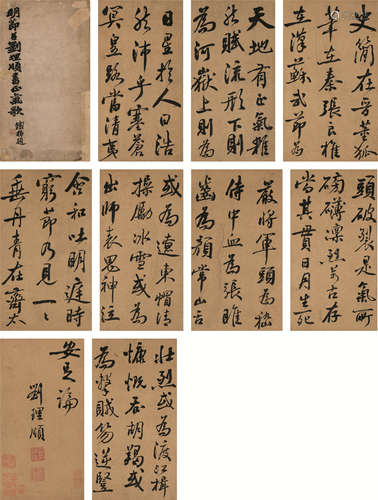 劉理順書正氣歌
天地有正氣雜
然賦流形下則
為河嶽上則為
日星於人曰浩
然沛乎塞蒼
冥皇路當清夷
含和吐明庭時
窮節乃見一一
垂丹青在齊太
史簡在晉董狐
筆在秦張良椎
在漢蘇武節為
嚴將軍頭為嵇
侍中血為張睢
齒為顏常山舌
或為遼東帽清
操勵冰雪或為
出師表鬼神泣
壯烈或為渡江楫
慷慨吞胡羯或
為擊賊笏逆豎
頭破裂是氣所
磅礴凜烈萬古存
當其貫日月生死
安足論
劉理順